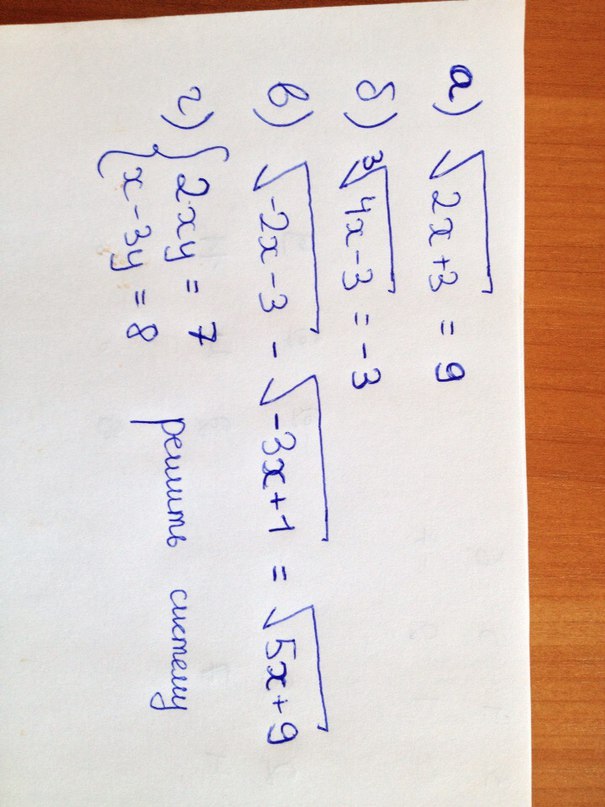 а) √(2x+3) = 9
б) ∛(4x-3) = -3
в) √(-2x-3) - √(-3x+1) = √(5x+9)
г) { 2xy = 7
{ x-3y = 8 решить систему